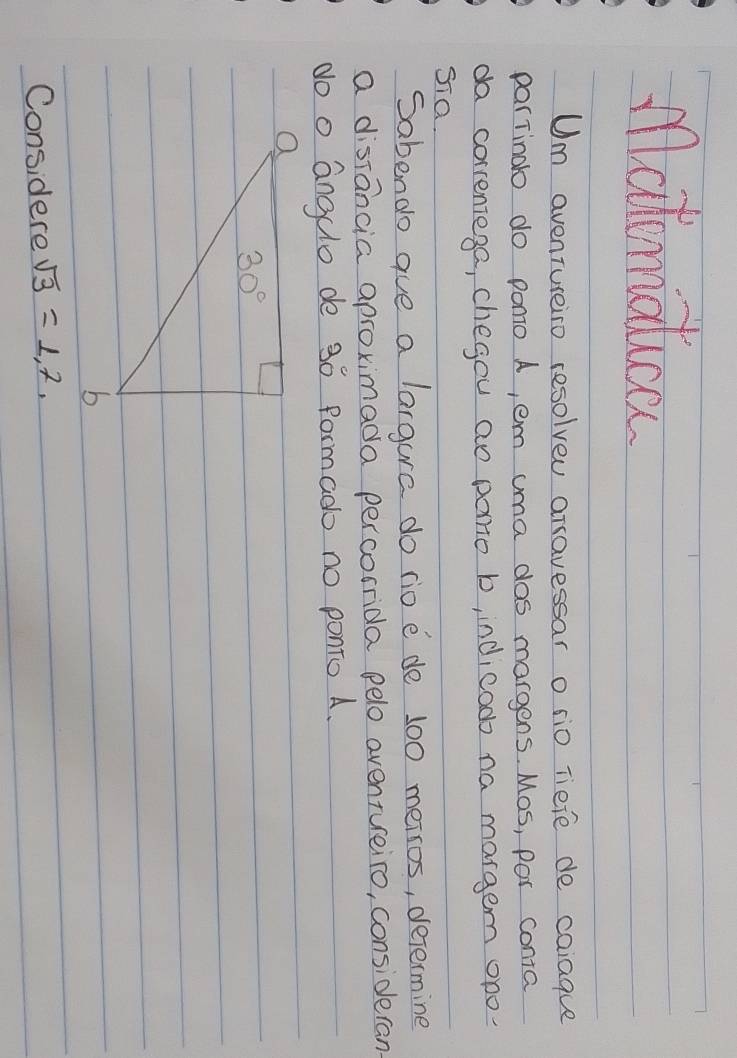 Matemática
Um aventureiro resolveu atravessar o rio Tietê de caiaque
partindo do ponto A, em uma das margens. Mas, por conta
da correnteza, chegou ao ponto b, indicado na margem opo-
sta.
Sabendo que a largura do rio é de 100 metros, determine
a distância aproximada percorrida pelo aventureiro, consideran-
do o ângulo de 30° formado no ponto A.
a
30°
b
Considere √3 = 1,7.